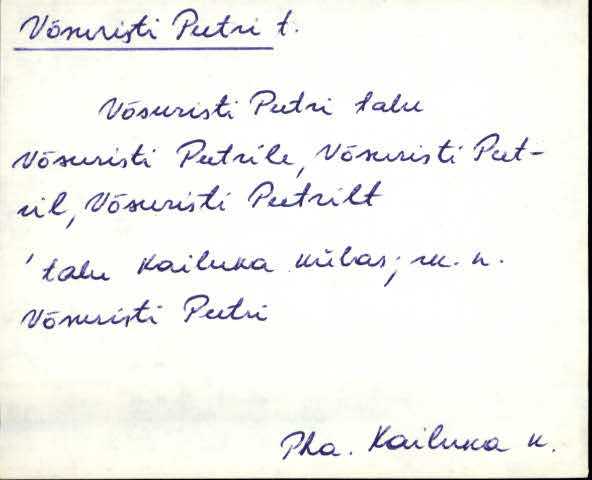 Võsuristi Peetri t.
Võsuristi Peetri talu
Võsuristi Peetrile, Võsuristi Peet-
ril, Võsuristi Peetrilt
' talu Kailuka külas; rk. n.
Võsuristi Peetri
Pha. Kailuka k.